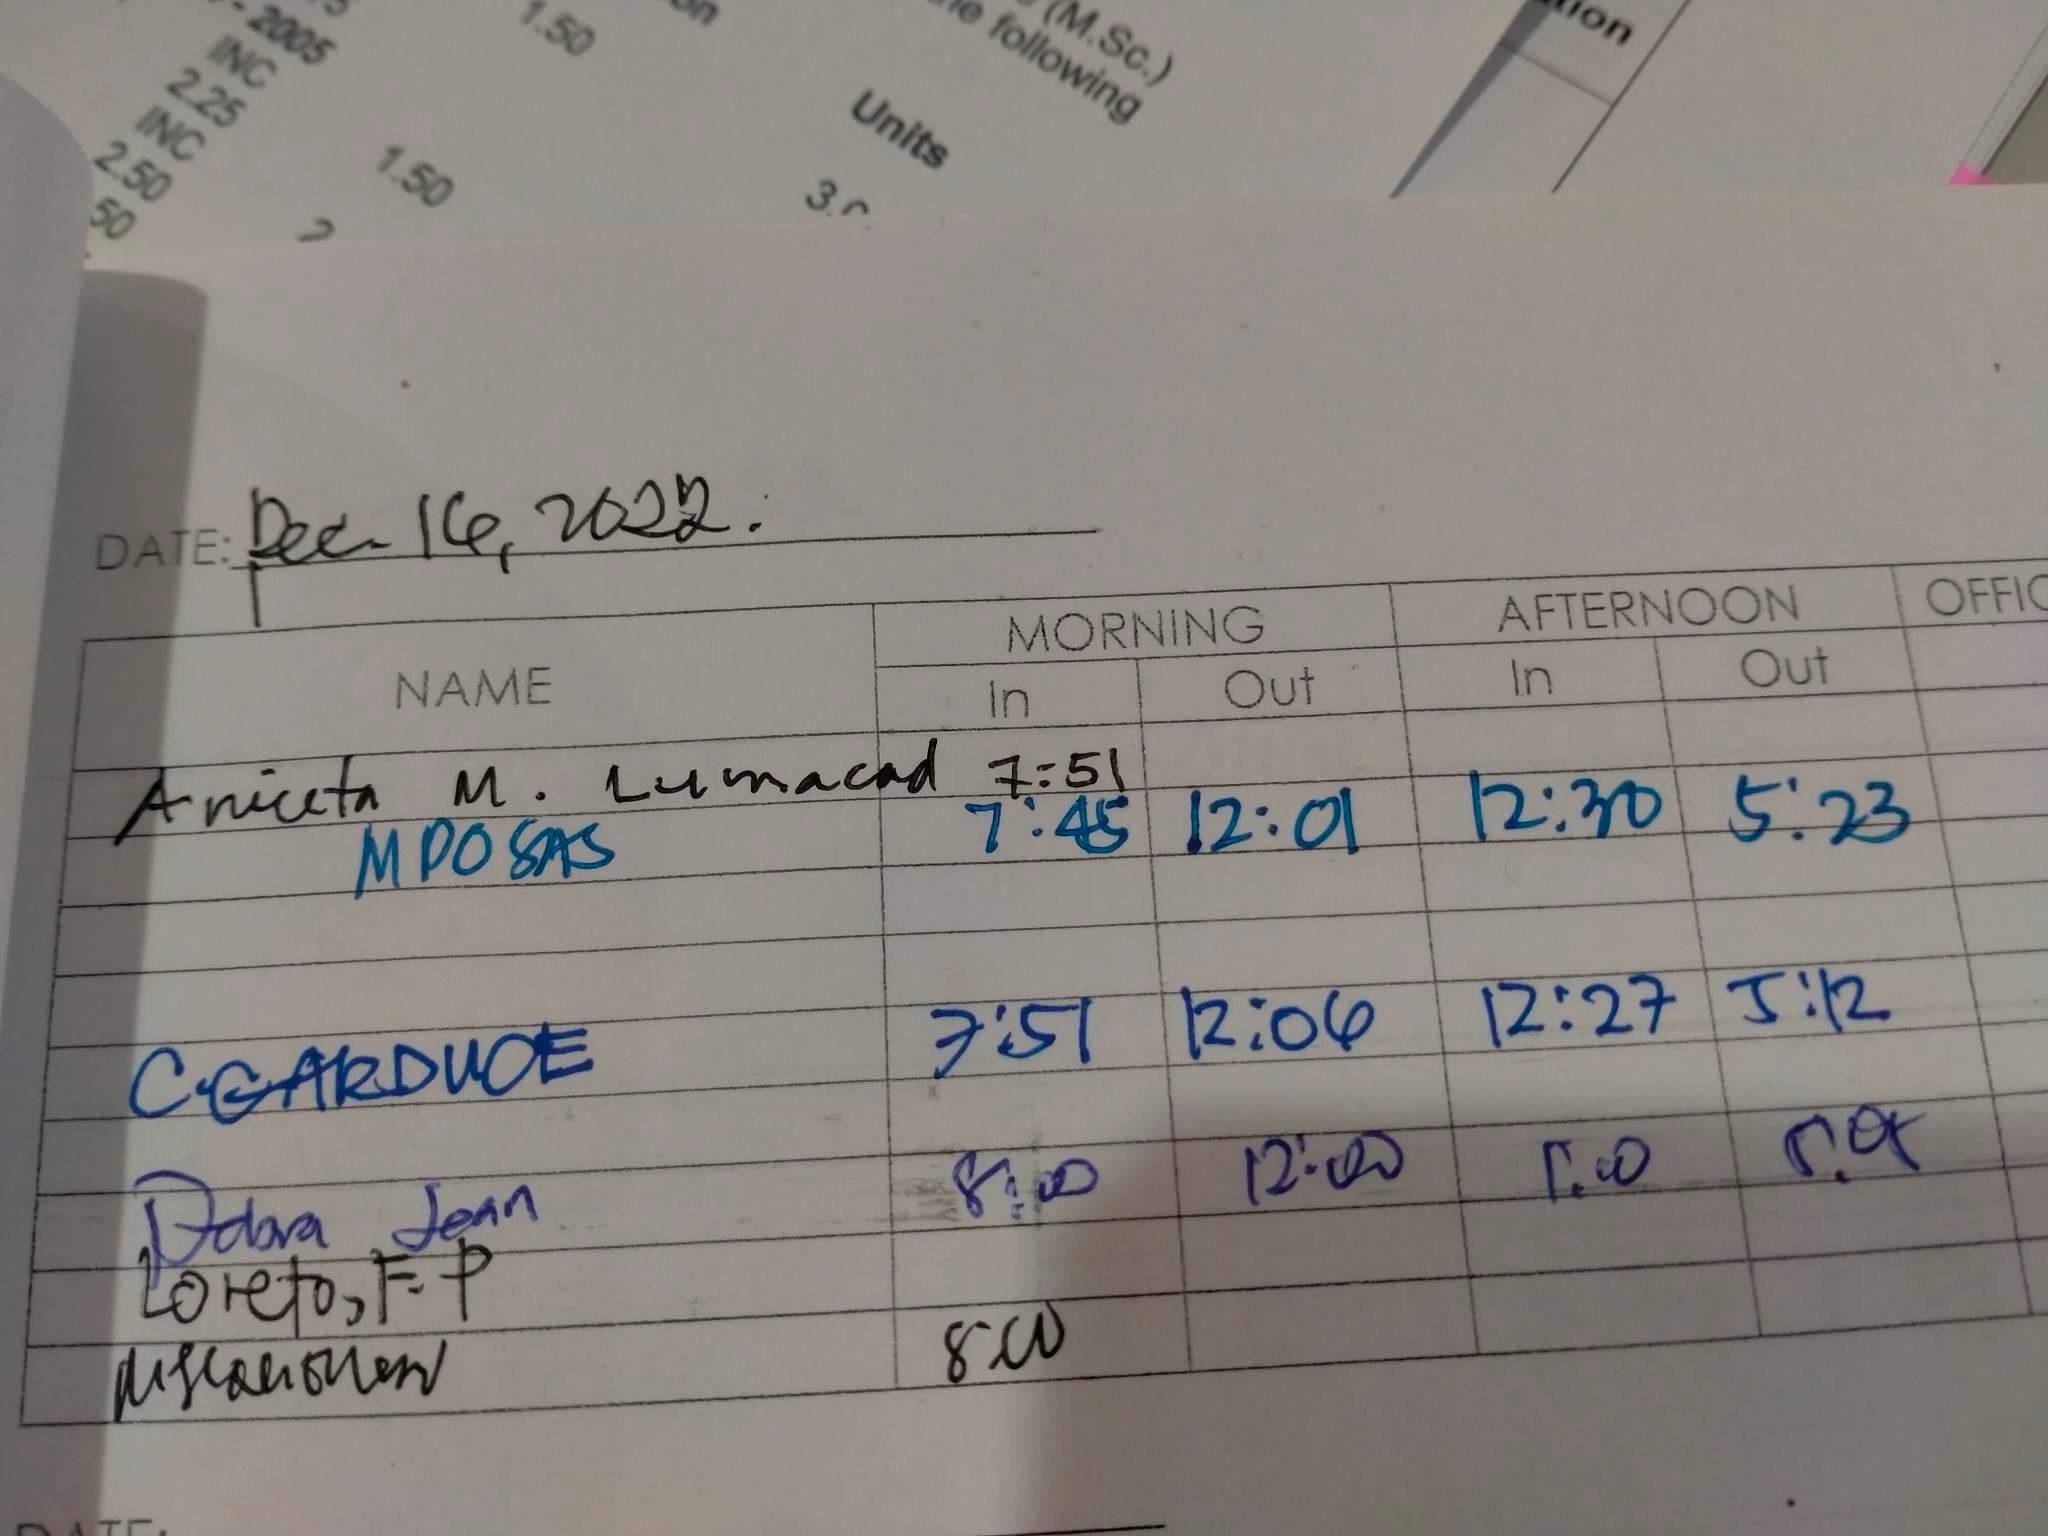 2005
1.50
on
(M.Sc.)
the following
tion
INC
2.25
INC
2.50
50
1.50
Units
DATE: Dec. 16, 2022.
NAME MORNING AFTERNOON
In Out In Out
Aniceta M. Lumacad 7:51
MPOSAS 7:45 12:01 12:30 5:23
C.GARDUCE 7:51 12:06 12:27 5:12
Debra Jean 8:00 12:00 1:00
Loreto, F. P
8:00
DATE: